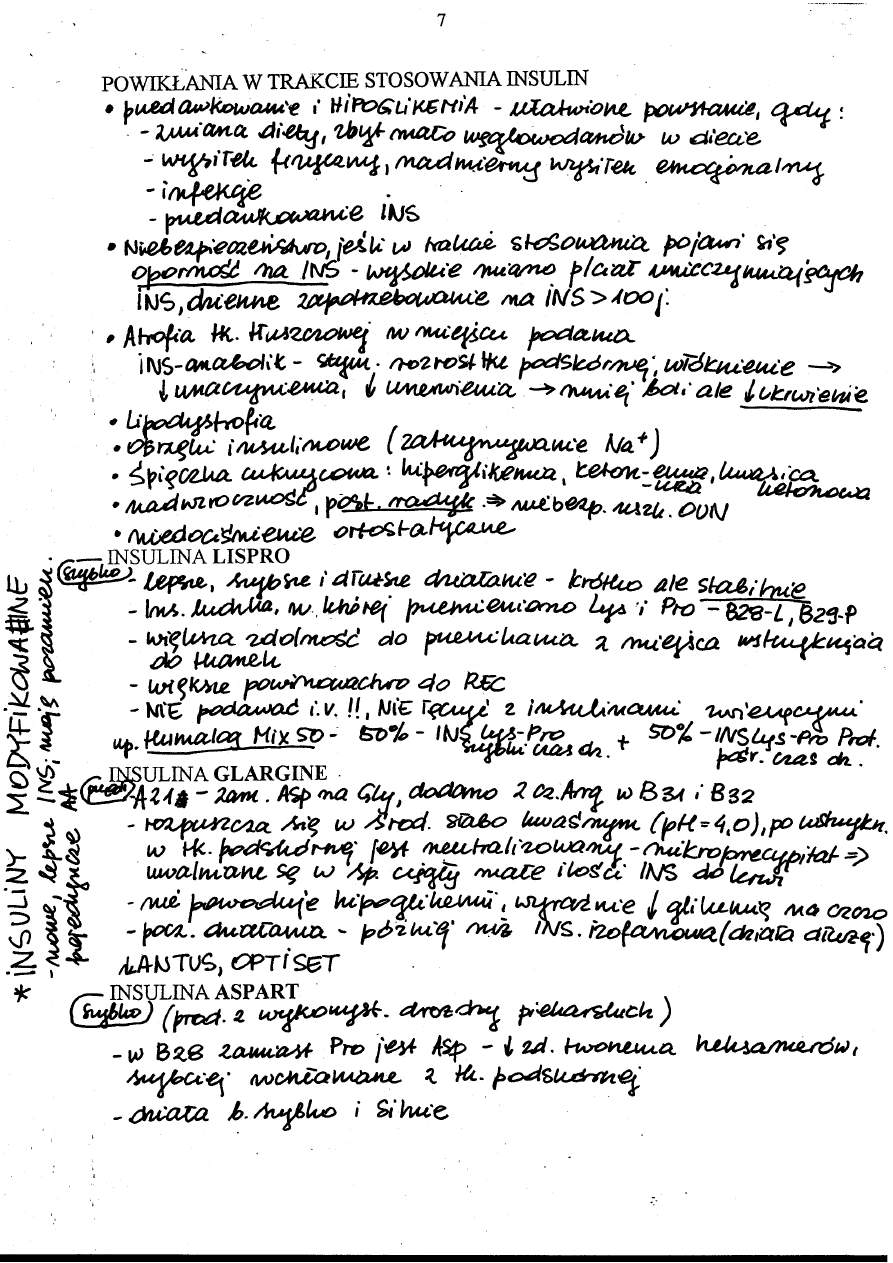 7
POWIKŁANIA W TRAKCIE STOSOWANIA INSULIN
• przedawkowanie i HIPOGLIKEMIA - ułatwione powstanie, gdy:
- zmiana diety, zbyt mało węglowodanów w diecie
- wysiłek fizyczny, nadmierny wysiłek emocjonalny
- infekcje
- przedawkowanie INS
• Niebezpieczeństwo, jeśli w trakcie stosowania pojawi się
oporność na INS - wysokie miano p/ciał unieczynniających
INS, dzienne zapotrzebowanie na INS > 100j.
• Atrofia tk. tłuszczowej w miejscu podania
INS-anabolik - stym. rozrost tk. podskórnej, włóknienie →
↓ unaczynienia, ↓ unerwienia → mniej boli ale ↓ ukrwienie
• Lipodystrofia
• Obrzęki insulinowe (zatrzymywanie Na⁺)
• Śpiączka cukrzycowa: hiperglikemia, keton-emia, kwasica
-uria ketonowa
• nadwzroczność, post. radyk. ⇒ niebezp. uszk. OUN
• niedociśnienie ortostatyczne
INSULINA LISPRO
szybko - lepsze, szybsze i dłuższe działanie - krótko ale stabilnie
- Ins. ludzka, w której przemieniono Lys i Pro - B28-L, B29-P
- większa zdolność do przenikania z miejsca wstrzyknięcia
do tkanek
- większe powinowactwo do REC
- NIE podawać i.v. !!, NIE łączyć z insulinami zwierzęcymi
np. Humalog Mix 50 - 50% - INS Lys-Pro + 50% - INS Lys-Pro Prot.
szybki czas dz. pośr. czas dz.
INSULINA GLARGINE
A21 - zam. Asp na Gly, dodano 2 cz. Arg w B31 i B32
- rozpuszcza się w środ. słabo kwaśnym (pH = 4,0), po wstrzykn.
w tk. podskórnej jest neutralizowany - mikroprecypitat ⇒
uwalniane są w sp. ciągły małe ilości INS do krwi
- nie powoduje hipoglikemii, wyraźnie ↓ glikemię na czczo
- pocz. działania - później niż INS. izofanowa (działa dłużej)
LANTUS, OPTISET
INSULINA ASPART
szybko (prod. z wykorzyst. drożdży piekarskich)
- w B28 zamiast Pro jest Asp - ↓ zd. tworzenia heksamerów,
szybciej wchłaniane z tk. podskórnej
- działa b. szybko i silnie
* INSULINY MODYFIKOWANE
- nowe, lepsze INS; mają pozamien.
pojedyncze AA